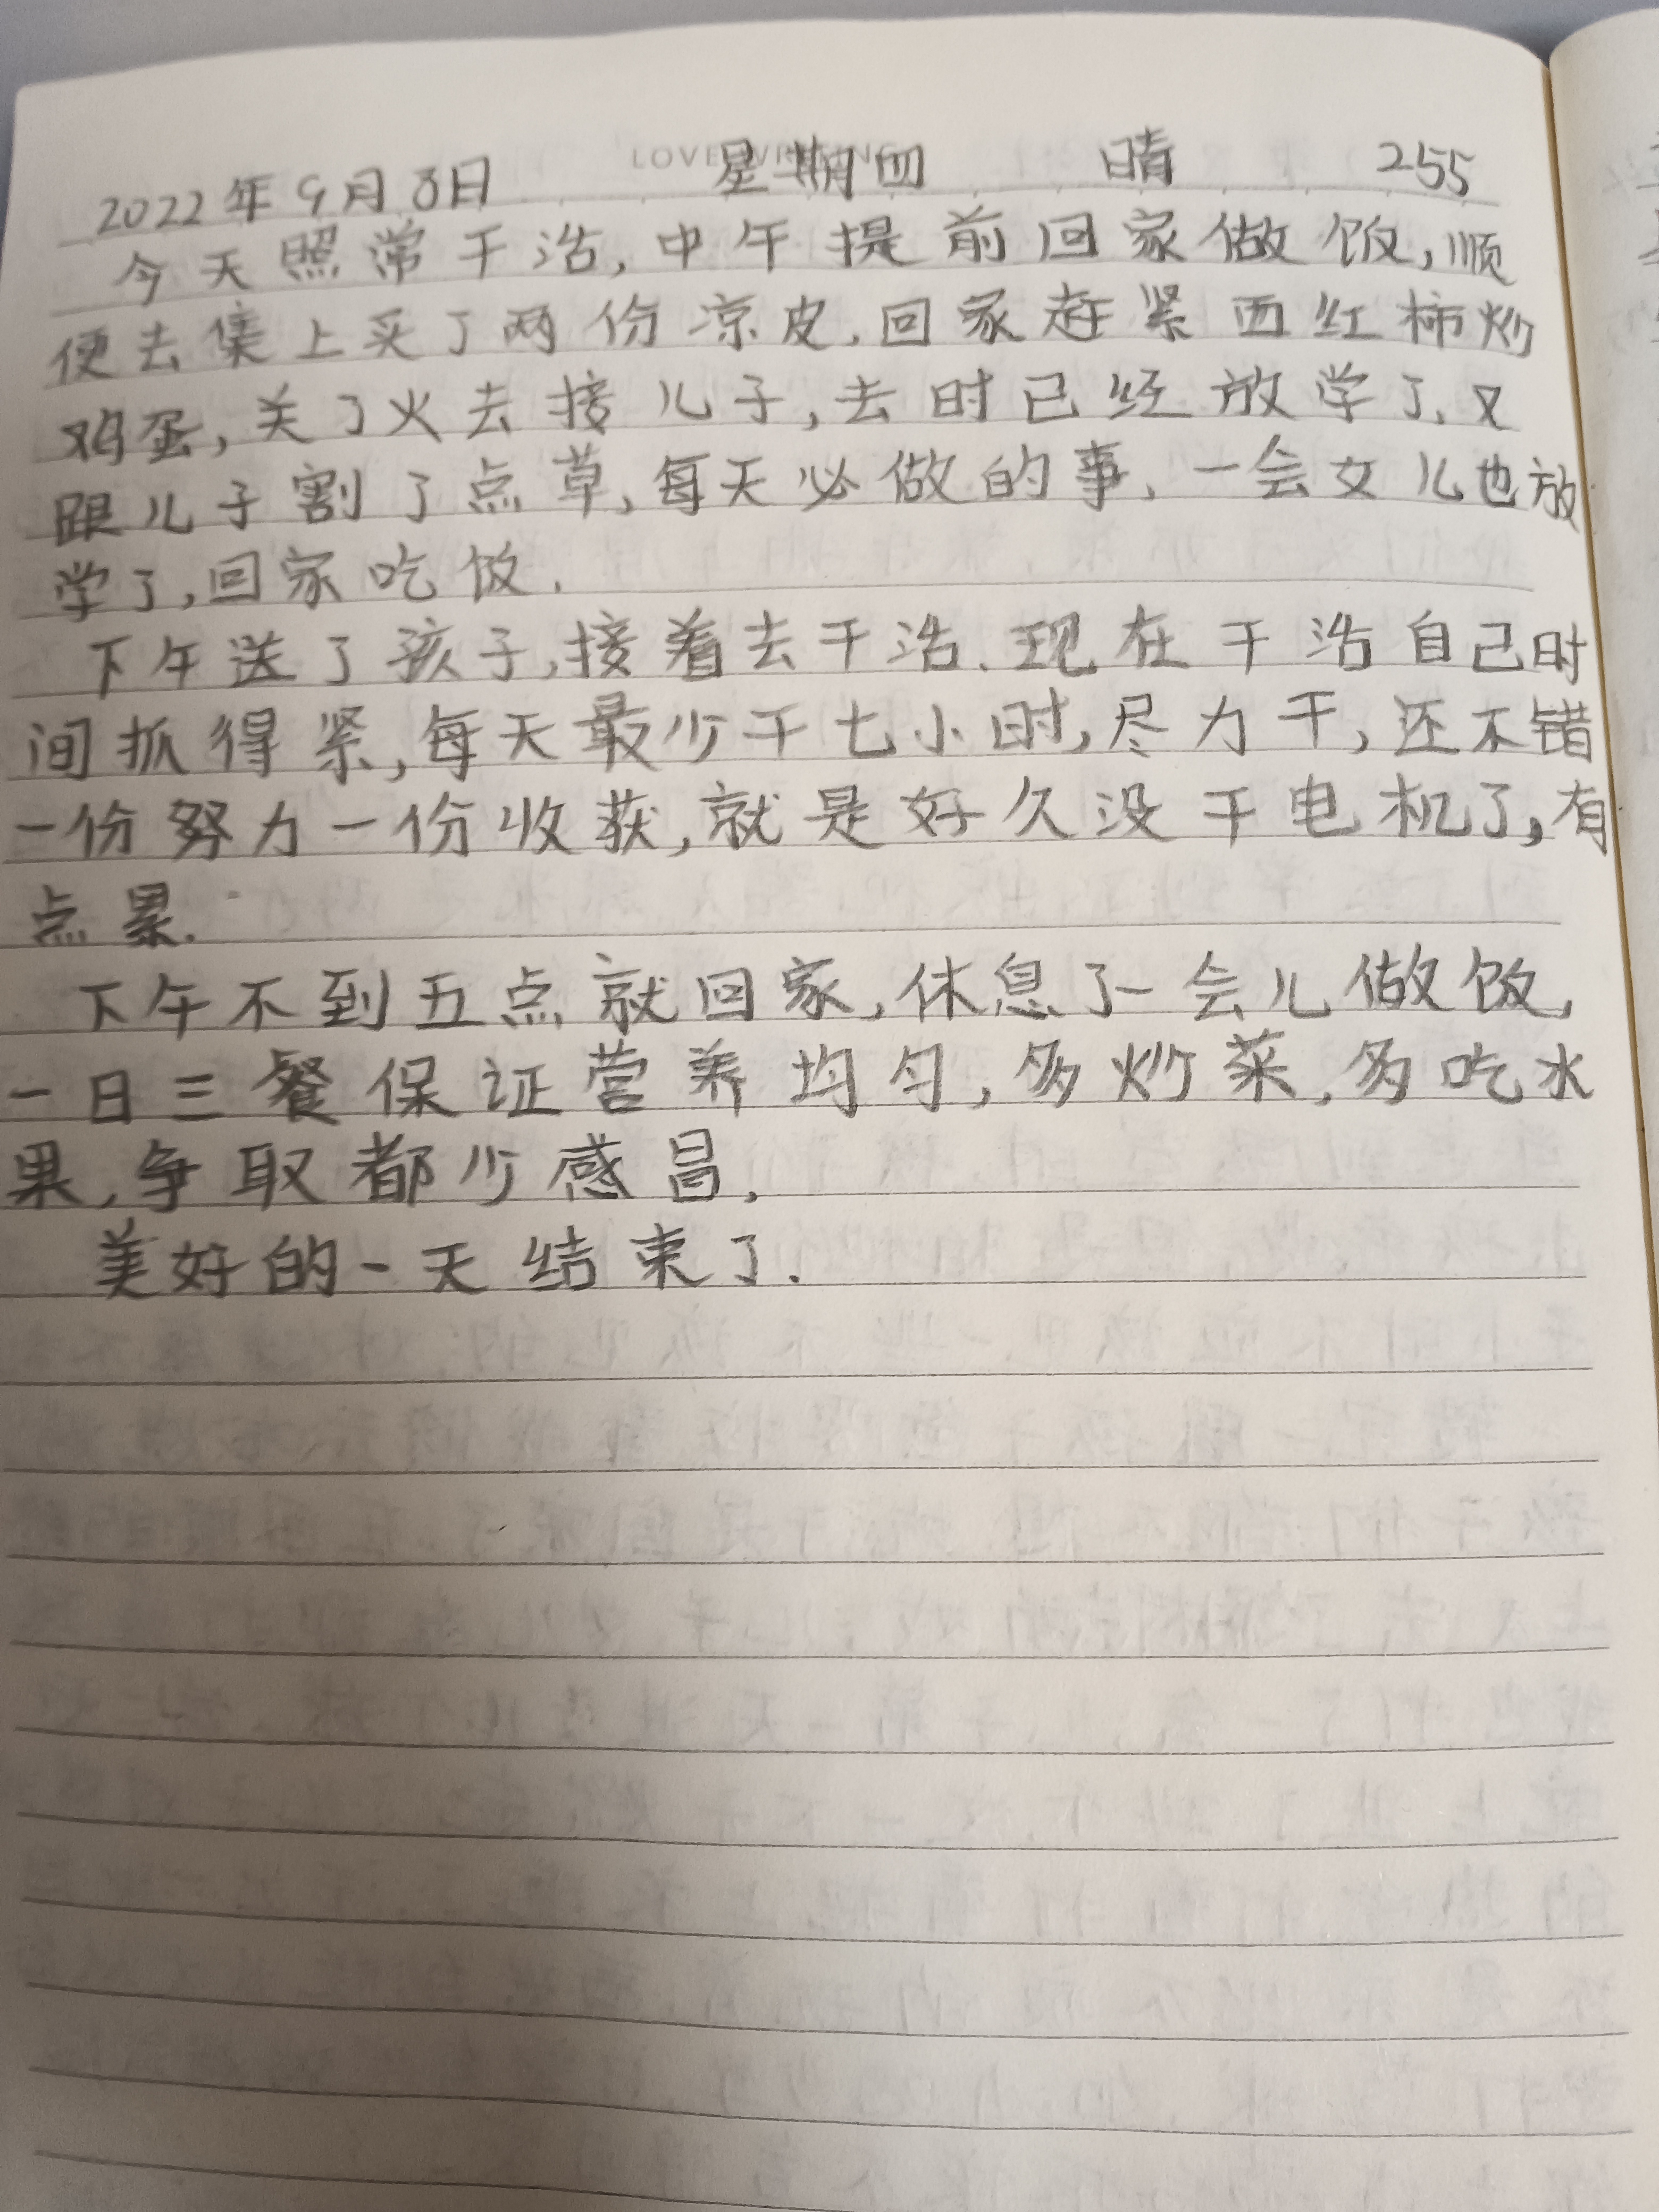 2022年9月8日 星期四 晴 255
今天照常干活,中午提前回家做饭,顺
便去集上买了两份凉皮.回家赶紧西红柿炒
鸡蛋,关了火去接儿子,去时已经放学了.又
跟儿子割了点草,每天必做的事.一会女儿也放
学了,回家吃饭.
下午送了孩子,接着去干活.现在干活自己时
间抓得紧,每天最少干七小时,尽力干,还不错
一份努力一份收获,就是好久没干电机了,有
点累.
下午不到五点就回家,休息了一会儿做饭,
一日三餐保证营养均匀,多炒菜,多吃水
果,争取都少感冒.
美好的一天结束了.